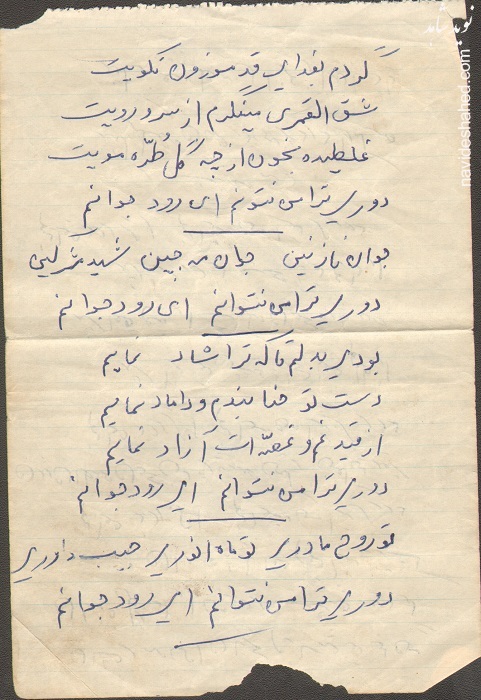 گردم بفدای قد موزون نکویت
شق القمری مینگرم از سر و رویت
غلطیده بخون از چه گل طُرّه مویت
دوری ترا من نتوانم ای رود جوانم
جوان نازنین جوان مه جبین شهید
دوری ترا من نتوانم ای رود جوانم
بودی بدلم تا که ترا شاد نمایم
دست تو حنا بندم و داماد نمایم
از قید غم و غصّه ات آزاد نمایم
دوری ترا من نتوانم ای رود جوانم
تو روح مادری تو ماه انوری حبیب داوری
دوری ترا من نتوانم ای رود جوانم
نوید شاهد
navideshahed.com